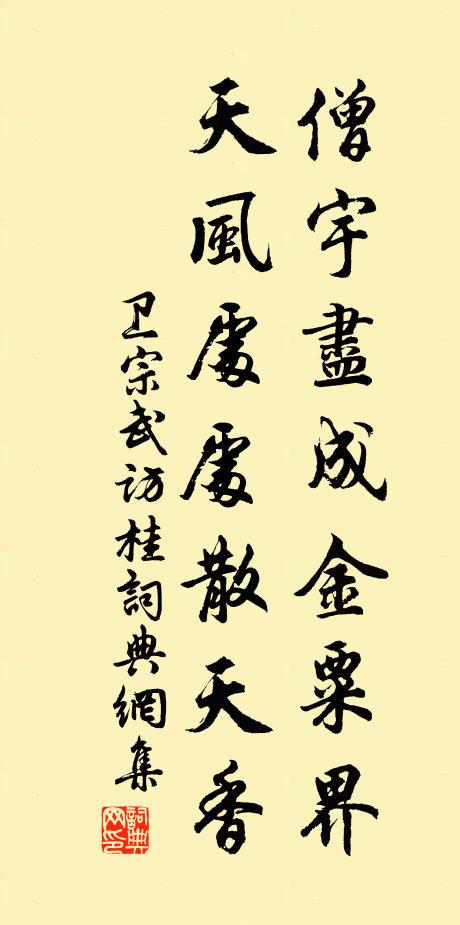 僧宇盡成金粟界
天風處處散天香
卫宗武访桂詞典網集
詞典網印